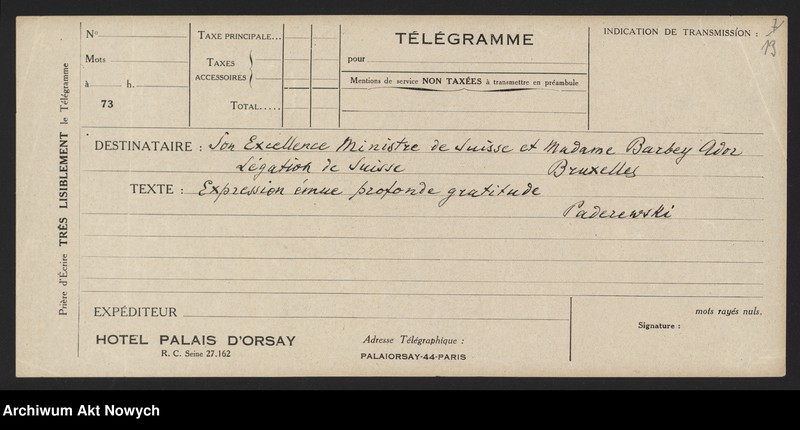 Prière d'Écrire TRÈS LISIBLEMENT le Télégramme
No
Mots
à h.
73
TAXE PRINCIPALE...
TAXES ACCESSOIRES
TOTAL.....
TÉLÉGRAMME
pour
Mentions de service NON TAXÉES à transmettre en préambule
INDICATION DE TRANSMISSION :
13
DESTINATAIRE : Son Excellence Ministre de Suisse et Madame Barbey Ador
Légation de Suisse Bruxelles
TEXTE : Expression émue profonde gratitude
Paderewski
EXPÉDITEUR
HOTEL PALAIS D'ORSAY
R. C. Seine 27.162
Adresse Télégraphique :
PALAIORSAY-44-PARIS
mots rayés nuls.
Signature :
Archiwum Akt Nowych